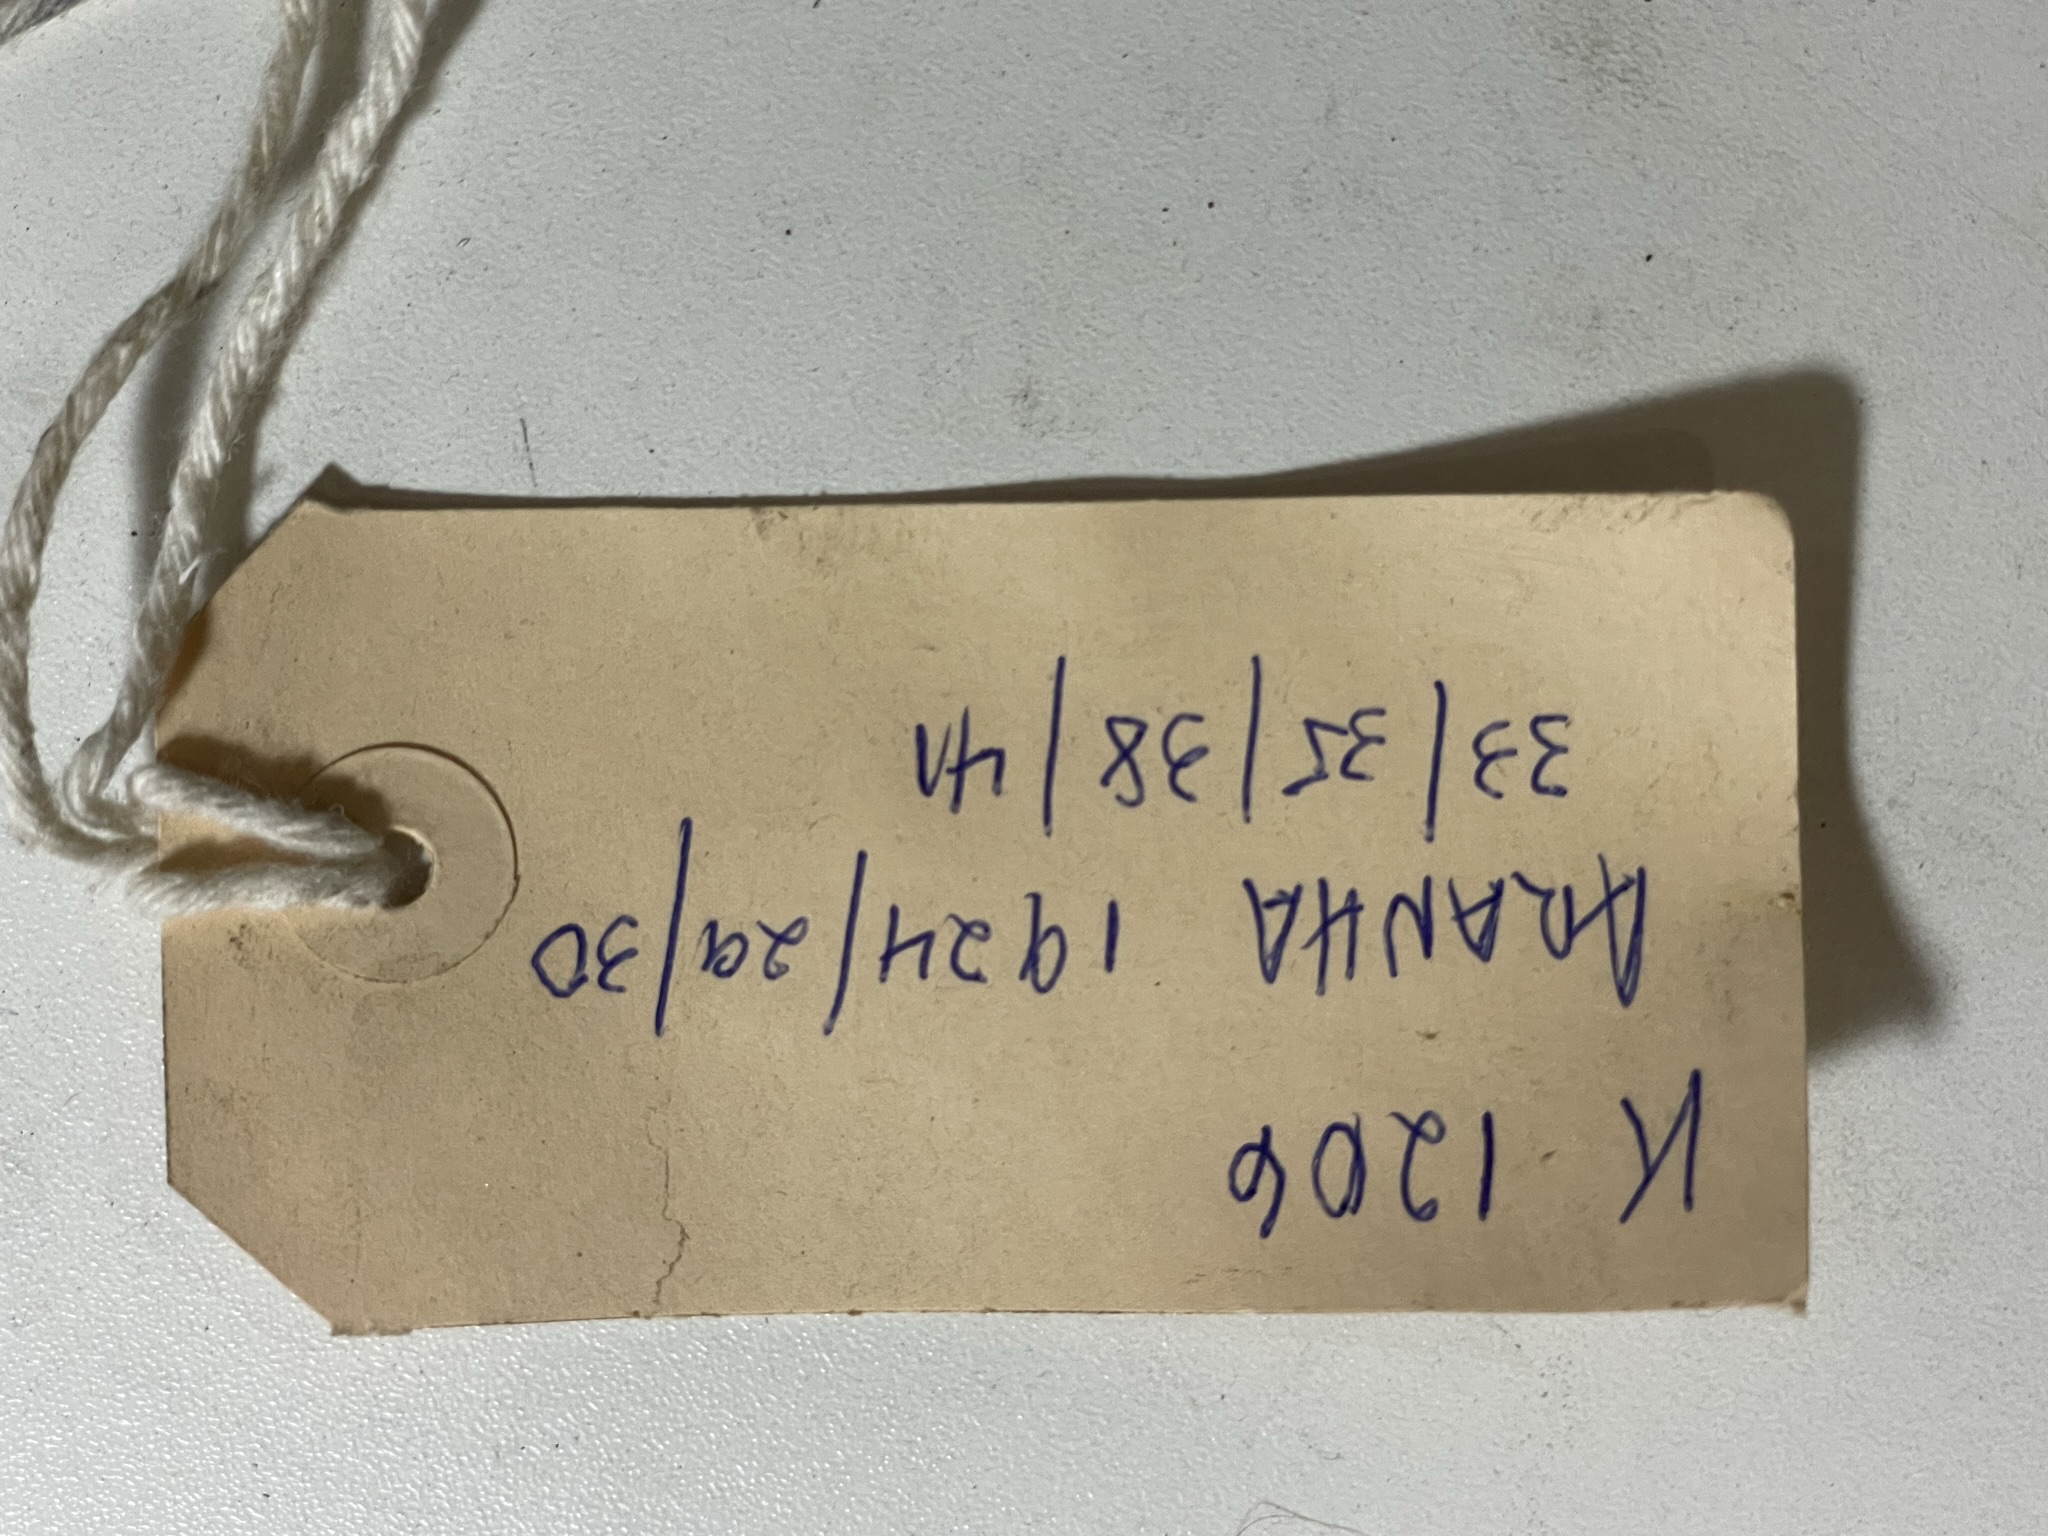 K 1206
ARANHA 1924/29/30
33/35/38/41